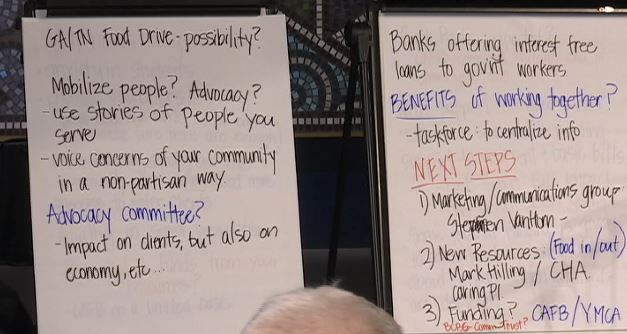 GA/TN Food Drive - possibility?
Mobilize people? Advocacy?
- use stories of people you
serve
- voice concerns of your community
in a non-partisan way.
Advocacy committee?
- Impact on clients, but also on
economy, etc...
Banks offering interest free
loans to gov'nt workers
BENEFITS of working together?
- taskforce: to centralize info
NEXT STEPS
1) Marketing/communications group:
Stephen VanHorn -
2) New Resources: (Food in/out)
Mark Hilling / CHA.
Caring Pl.
3) Funding? CAFB/YMCA
Trust?